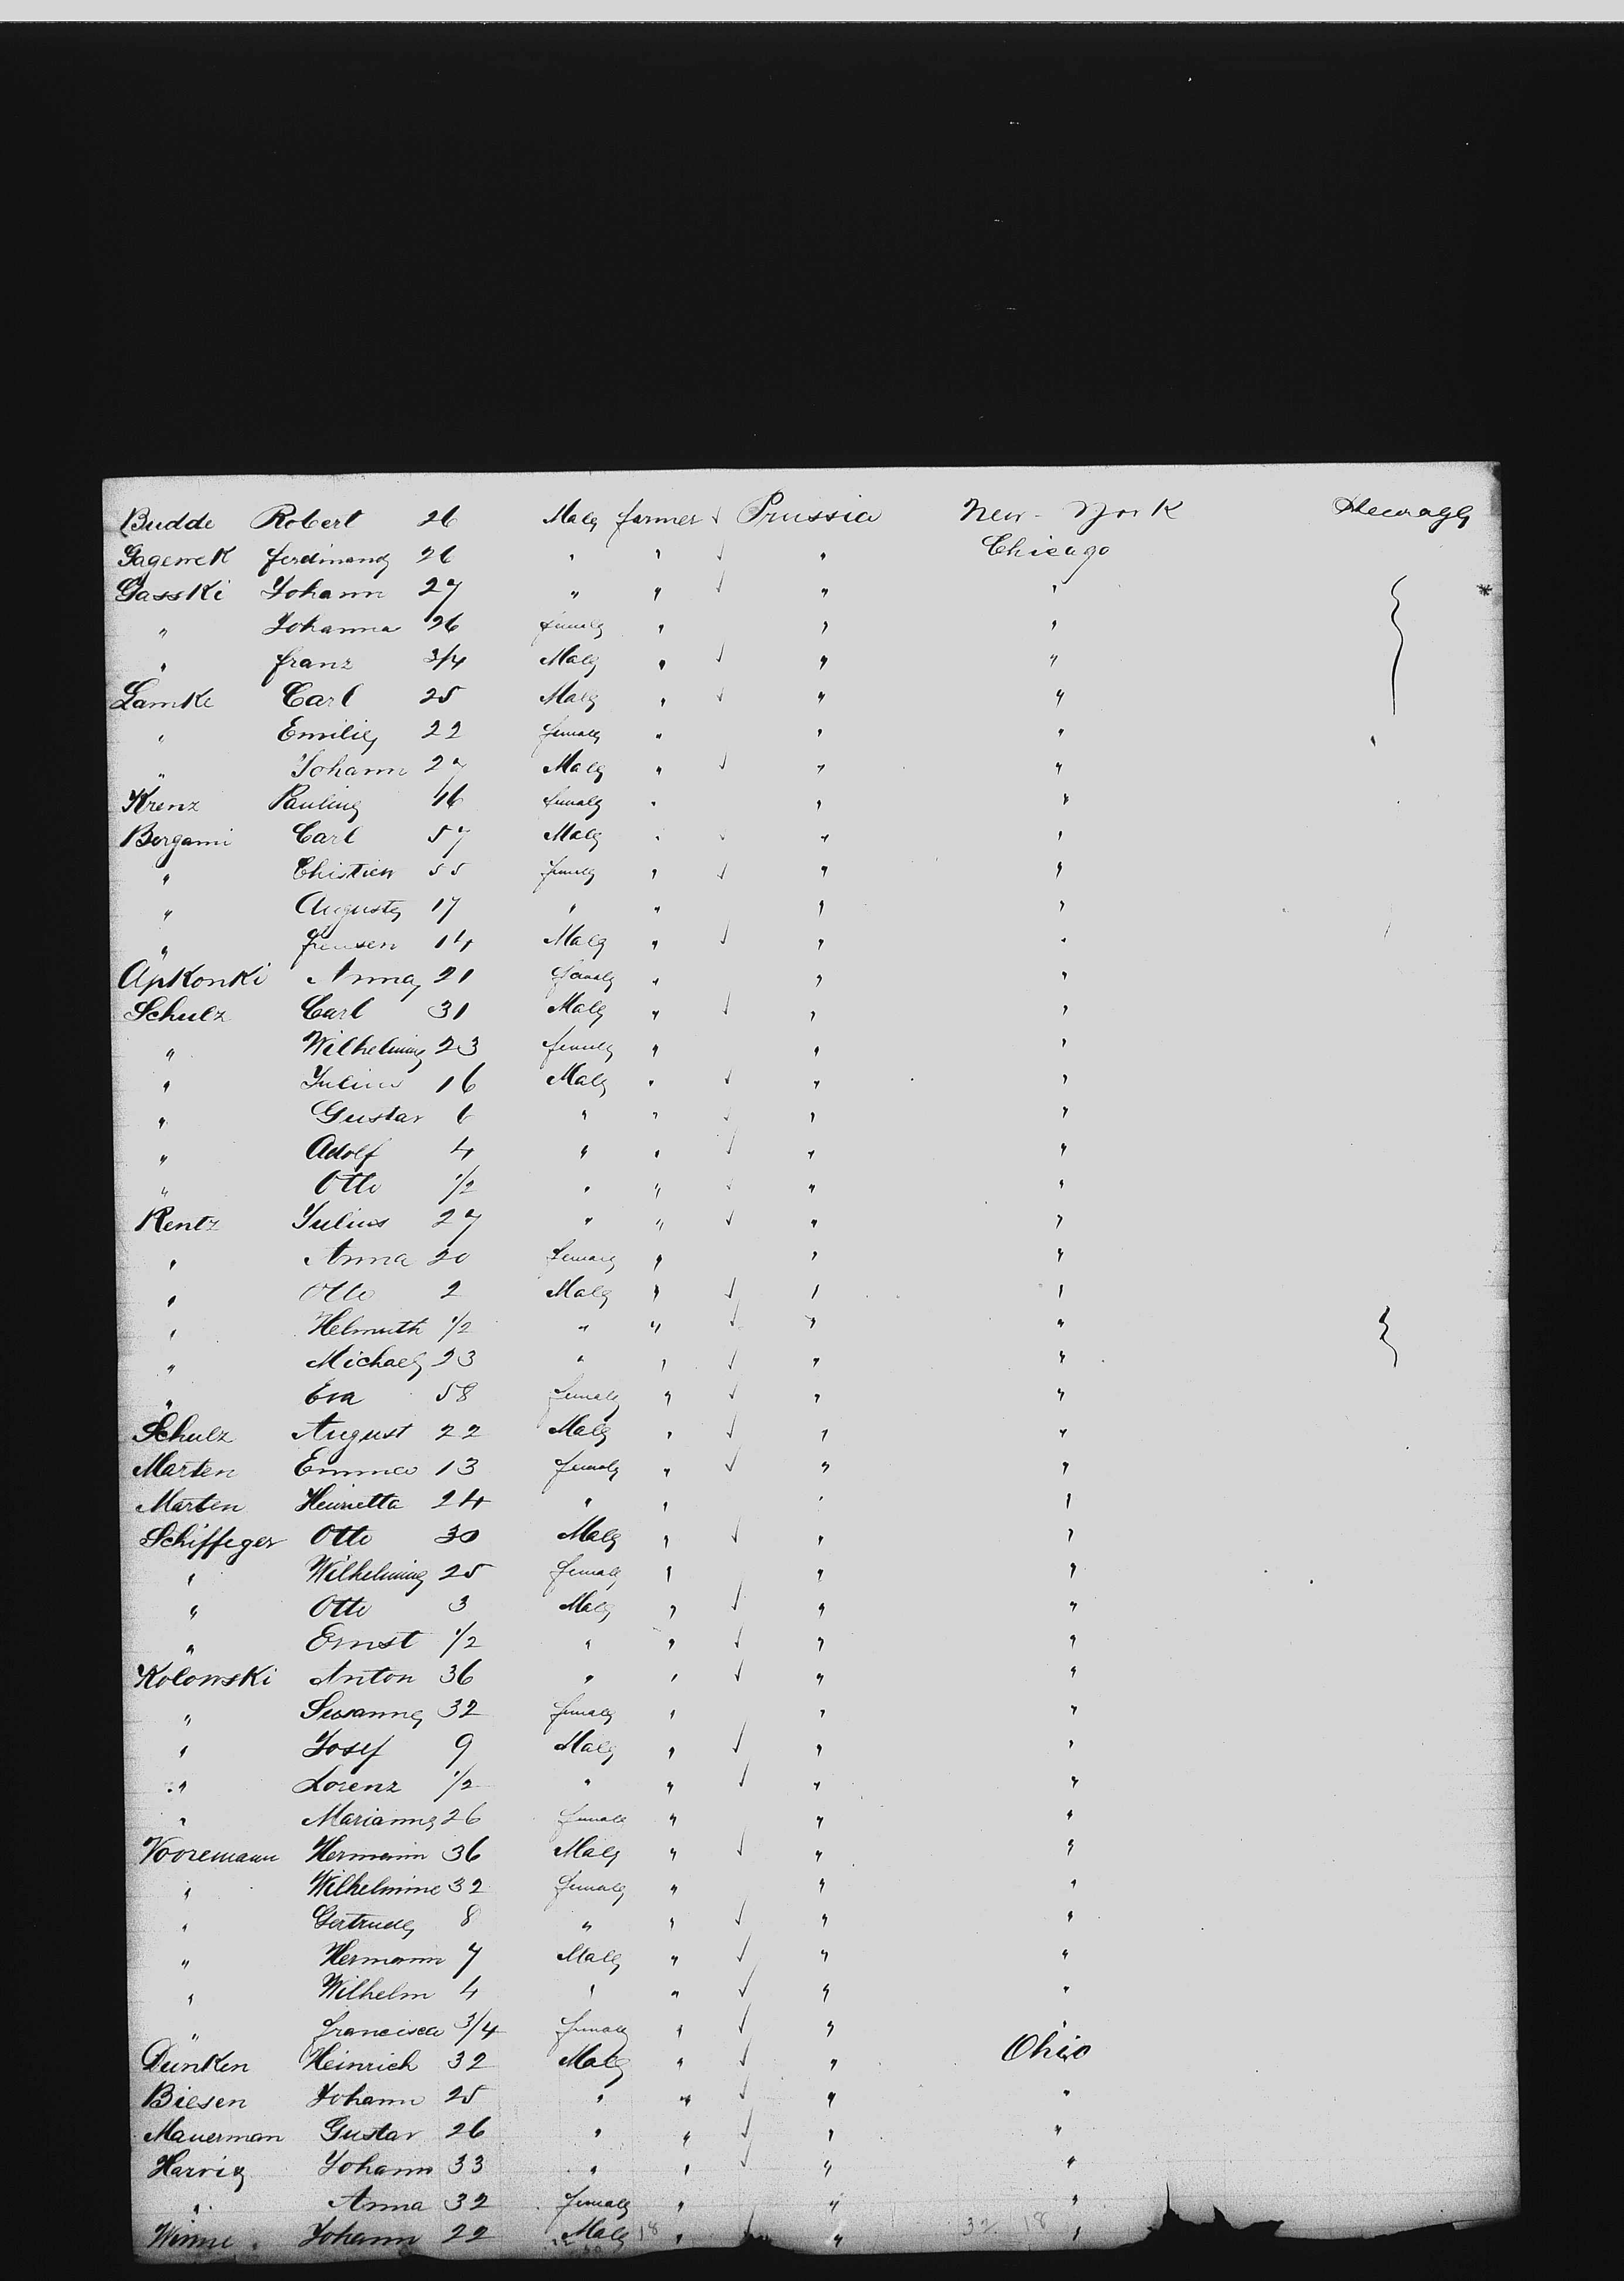 Budde Robert 26 Male farmer √ Prussia New-York Steerage
Gagewek ferdinand 26 " " √ " Chicago
Gasski Johann 27 " " √ " "
" Johanna 26 female " " "
" franz 3/4 Male " √ " "
Lamke Carl 25 Male " √ " "
" Emilie 22 female " " "
" Johann 27 Male " √ " "
Krenz Pauline 46 female " " "
Bergami Carl 57 Male " √ " "
" Chistien 55 female " √ " "
" Auguste 17 " " " "
" 14 Male " √ " "
Apkonki Anna 21 female " " "
Schulz Carl 31 Male " √ " "
" Wilhelmine 23 female " " "
" Julius 16 Male " √ " "
" Gustav 6 " " √ " "
" Adolf 4 " " √ " "
" Otto 1/2 " " √ " "
Rentz Julius 27 " " √ " "
" Anna 20 female " " "
" Otto 2 Male " √ " "
" Helmuth 1/2 " " √ " "
" Michael 23 " " √ " "
" Eva 58 female " √ " "
Schulz August 22 Male " √ " "
Marten Emma 13 female " √ " "
Marten Henrietta 24 " " " "
Schiffeger Otto 30 Male " √ " "
" Wilhelmine 25 female " " "
" Otto 3 Male " √ " "
" Ernst 1/2 " " √ " "
Kolowski Anton 36 " " √ " "
" Susanne 32 female " " "
" Josef 9 Male " √ " "
" Lorenz 1/2 " " √ " "
" Marianne 26 female " " "
Vooremann Hermann 36 Male " √ " "
" Wilhelmine 32 female " " "
" Gertrude 8 " " √ " "
" Hermann 7 Male " √ " "
" Wilhelm 4 " " √ " "
" francisca 3/4 female " √ " "
Dunken Heinrich 32 Male " √ " Ohio
Biesen Johann 25 " " √ " "
Mauerman Gustav 26 " " √ " "
Harvig Johann 33 " " √ " "
" Anna 32 female " " "
Winne Johann 22 Male 18 " " 32 18 "